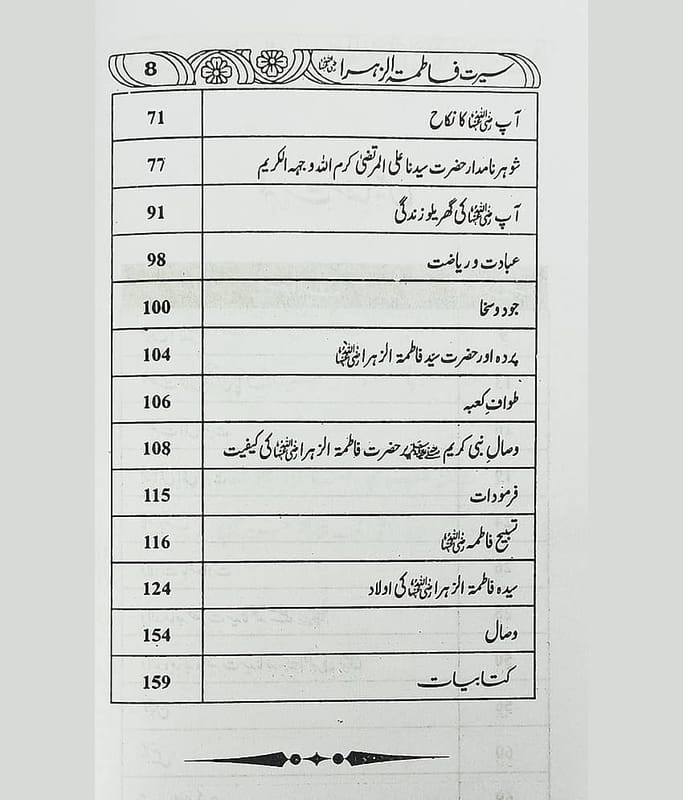 سیرت فاطمۃ الزہرا رضی اللہ عنہا 8
آپ رضی اللہ عنہا کا نکاح 71
شوہر نامدار حضرت سیدنا علی المرتضیٰ کرم اللہ وجہہ الکریم 77
آپ رضی اللہ عنہا کی گھریلو زندگی 91
عبادت و ریاضت 98
جود و سخا 100
پردہ اور حضرت سید فاطمۃ الزہرا رضی اللہ عنہا 104
طوافِ کعبہ 106
وصالِ نبی کریم ﷺ پر حضرت فاطمۃ الزہرا رضی اللہ عنہا کی کیفیت 108
فرمودات 115
تسبیح فاطمہ رضی اللہ عنہا 116
سیدہ فاطمۃ الزہرا رضی اللہ عنہا کی اولاد 124
وصال 154
کتابیات 159